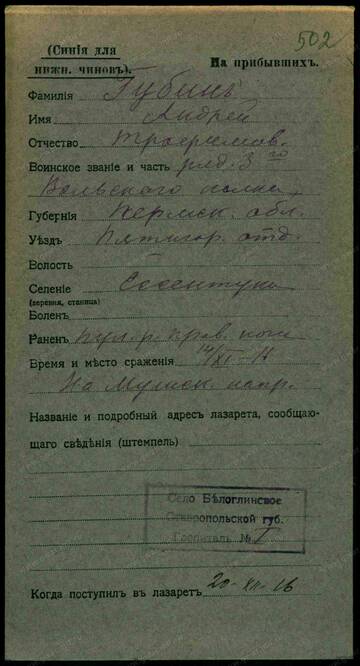 502
(Синія для
нижн. чиновъ).
На прибывшихъ.
Фамилія Губинъ
Имя Андрей
Отчество Трофимов.
Воинское званіе и часть ряд. 3го
Вольскаго полка
Губернія Терск. обл.
Уѣздъ Пятигор. отд.
Волость
Селеніе Ессентуки
(деревня, станица)
Боленъ
Раненъ пул. р. прав. ноги
Время и мѣсто сраженія 14/XI-16
На Мушск. напр.
Названіе и подробный адресъ лазарета, сообщаю-
щаго свѣдѣнія (штемпель)
Село Бѣлоглинское
Ставропольской губ.
Госпиталь № I
Когда поступилъ въ лазаретъ 20-XII-16